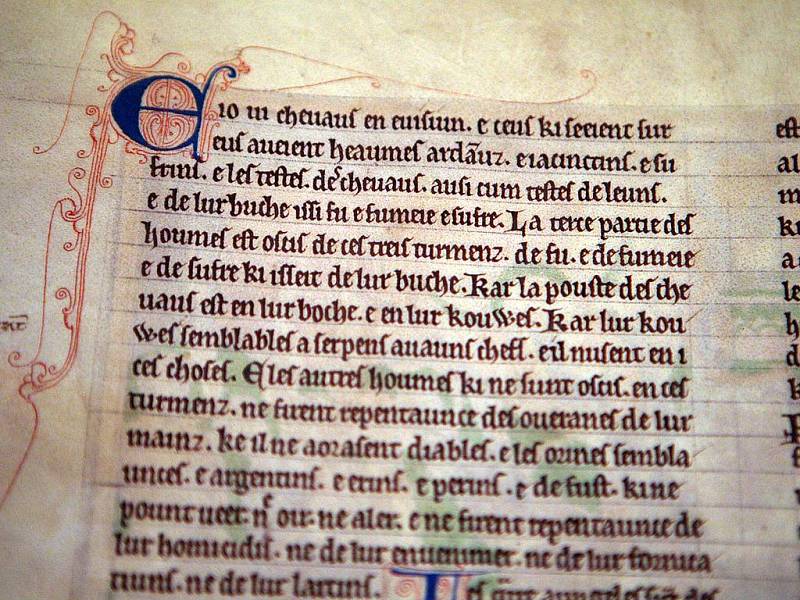 E io ui cheuaus en euisiun. e ceus ki seeient sur
eus aueient heaumes ardāuz. e iacinctins. e su
frins. e les testes. des cheuaus. ausi cum testes de leuns.
e de lur buche issi fu e fumeie e sufre. La terce partie des
houmes est ocis de ces treis turmenz. de fu. e de fumeie
e de sufre ki isseit de lur buche. Kar la pouste des che
uaus est en lur boche. e en lur kouwes. Kar lur kou
wes semblables a serpens auauns chefs. e il nusent en i
ces choses. E les autres houmes ki ne sunt ocis. en ces
turmenz. ne firent repentaunce des oueranes de lur
mainz. ke il ne aorasent diables. e les ormes sembla
unces. e argentins. e erins. e perins. e de fust. ki ne
pount ueer. ne oir. ne aler. e ne firent repentaunce de
lur homicidis. ne de lur enuenimer. ne de lur fornica
tiuns. ne de lur larcins.
est
al